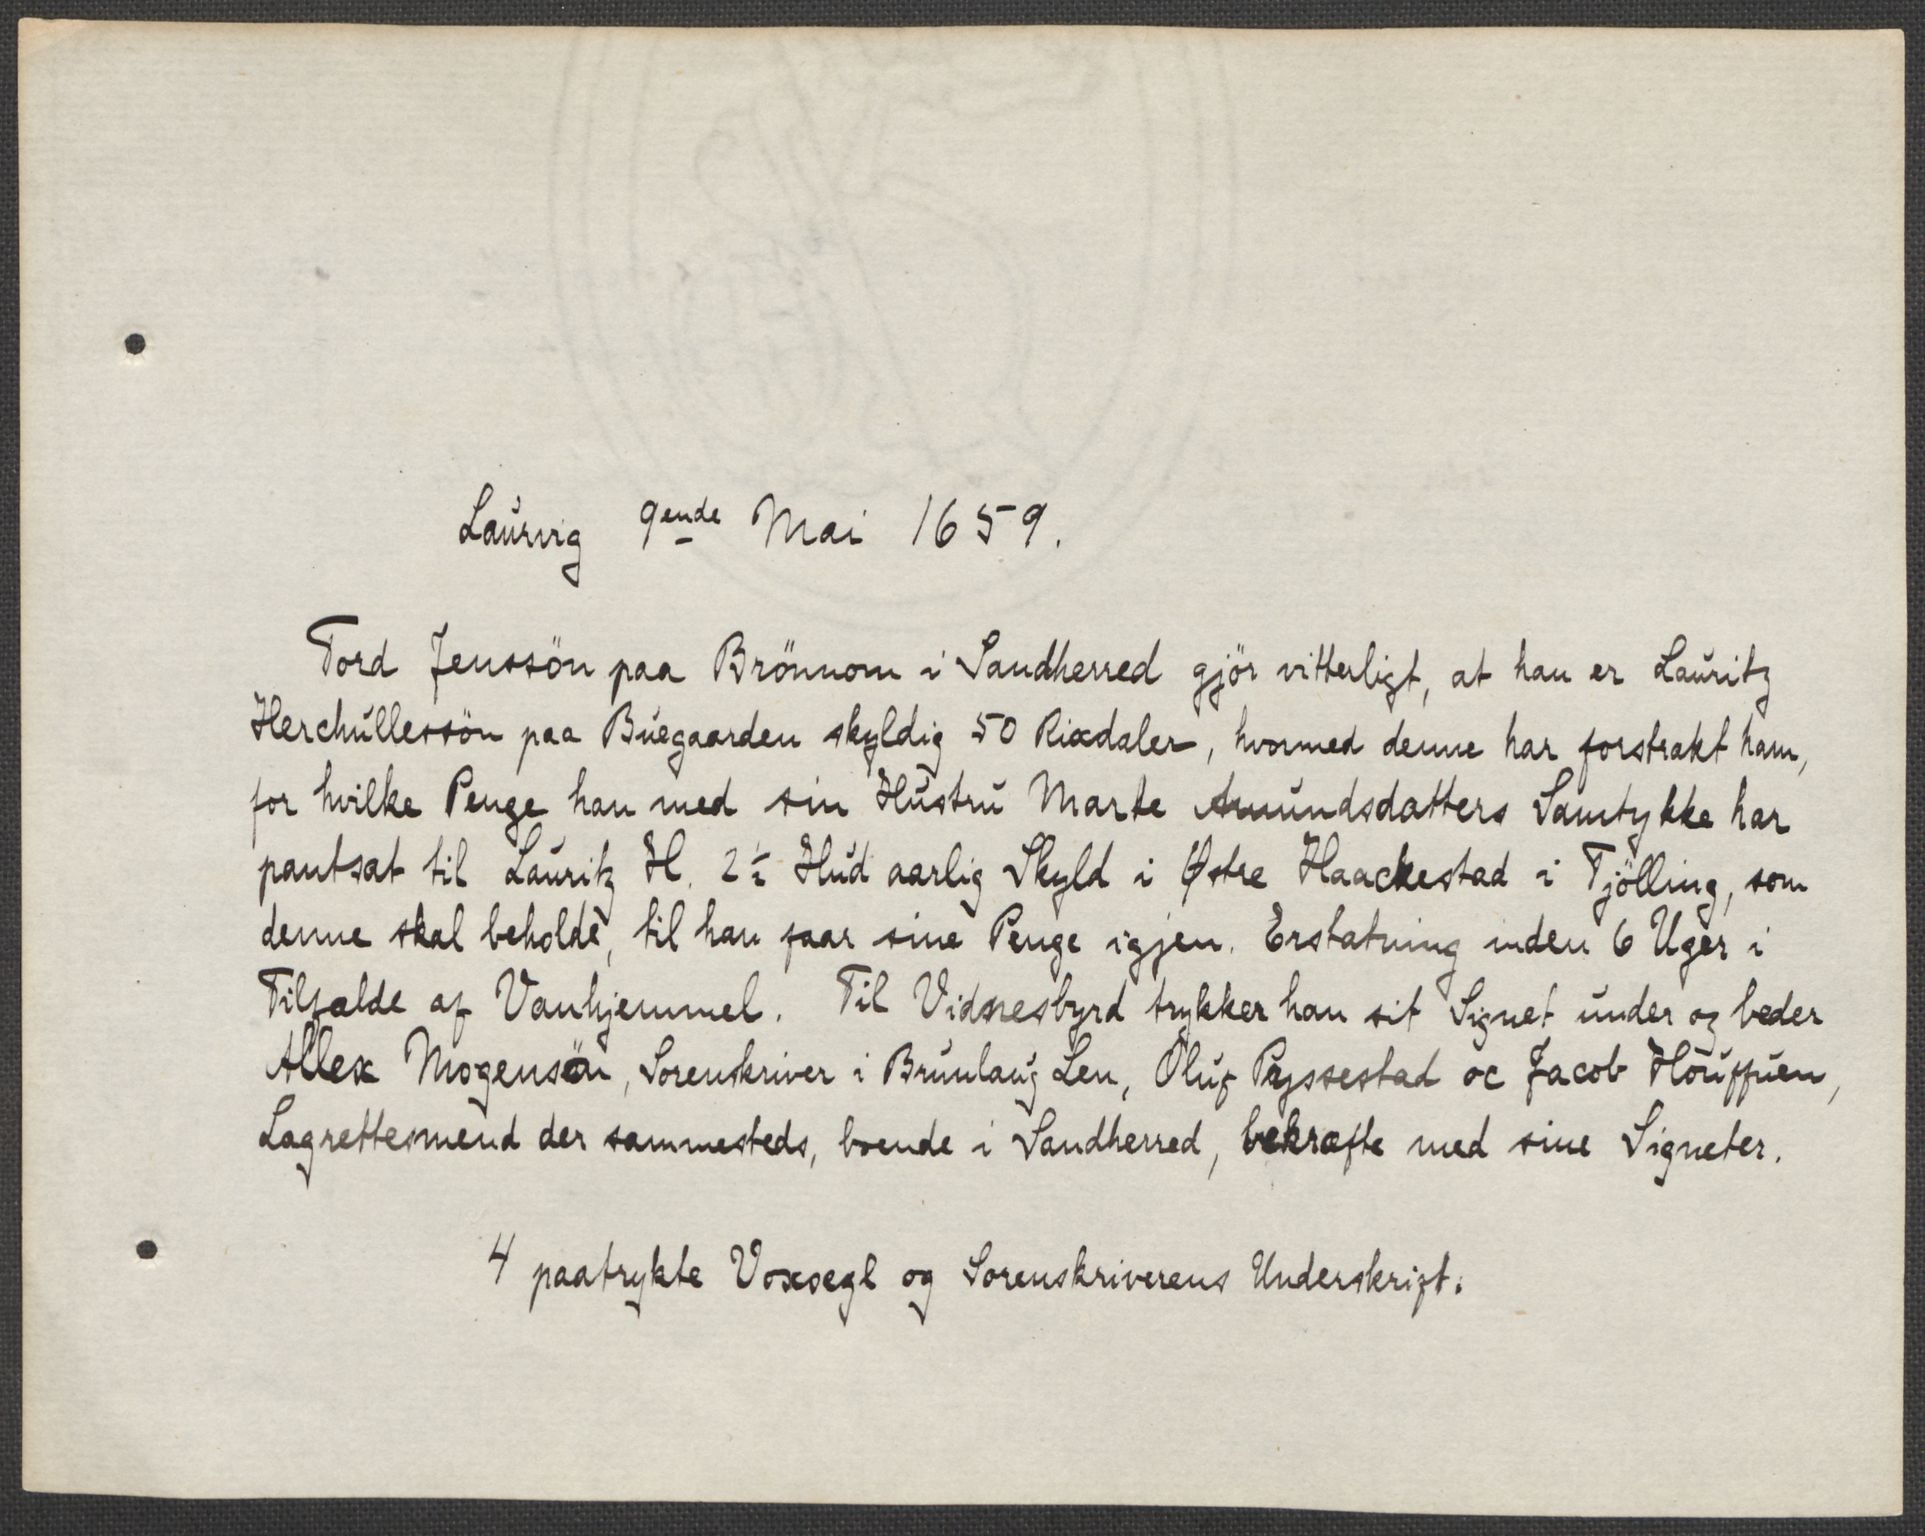 Laurvig 9ende Mai 1659.
Tord Jenssön paa Brönnom i Sandherred gjör vitterligt, at han er Lauritz
Herchullessön paa Buegaarden skyldig 50 Rixdaler, hvormed denne har forstrakt ham,
for hvilke Penge han med sin Hustru Marte Amundsdatters Samtykke har
pantsat til Lauritz H. 2½ Hud aarlig Skyld i Østre Haackestad i Tjölling, som
denne skal beholde, til han faar sine Penge igjen. Erstatning inden 6 Uger i
Tilfælde af Vanhjemmel. Til Vidnesbyrd trykker han sit Signet under og beder
Allex Mogensön, Sorenskriver i Brunlaug Len, Oluf Pyssestad oc Jacob Houffuen,
Lagrettesmend der sammesteds, boende i Sandherred, bekræfte med sine Signeter.
4 paatrykte Voxsegl og Sorenskriverens Underskrift.